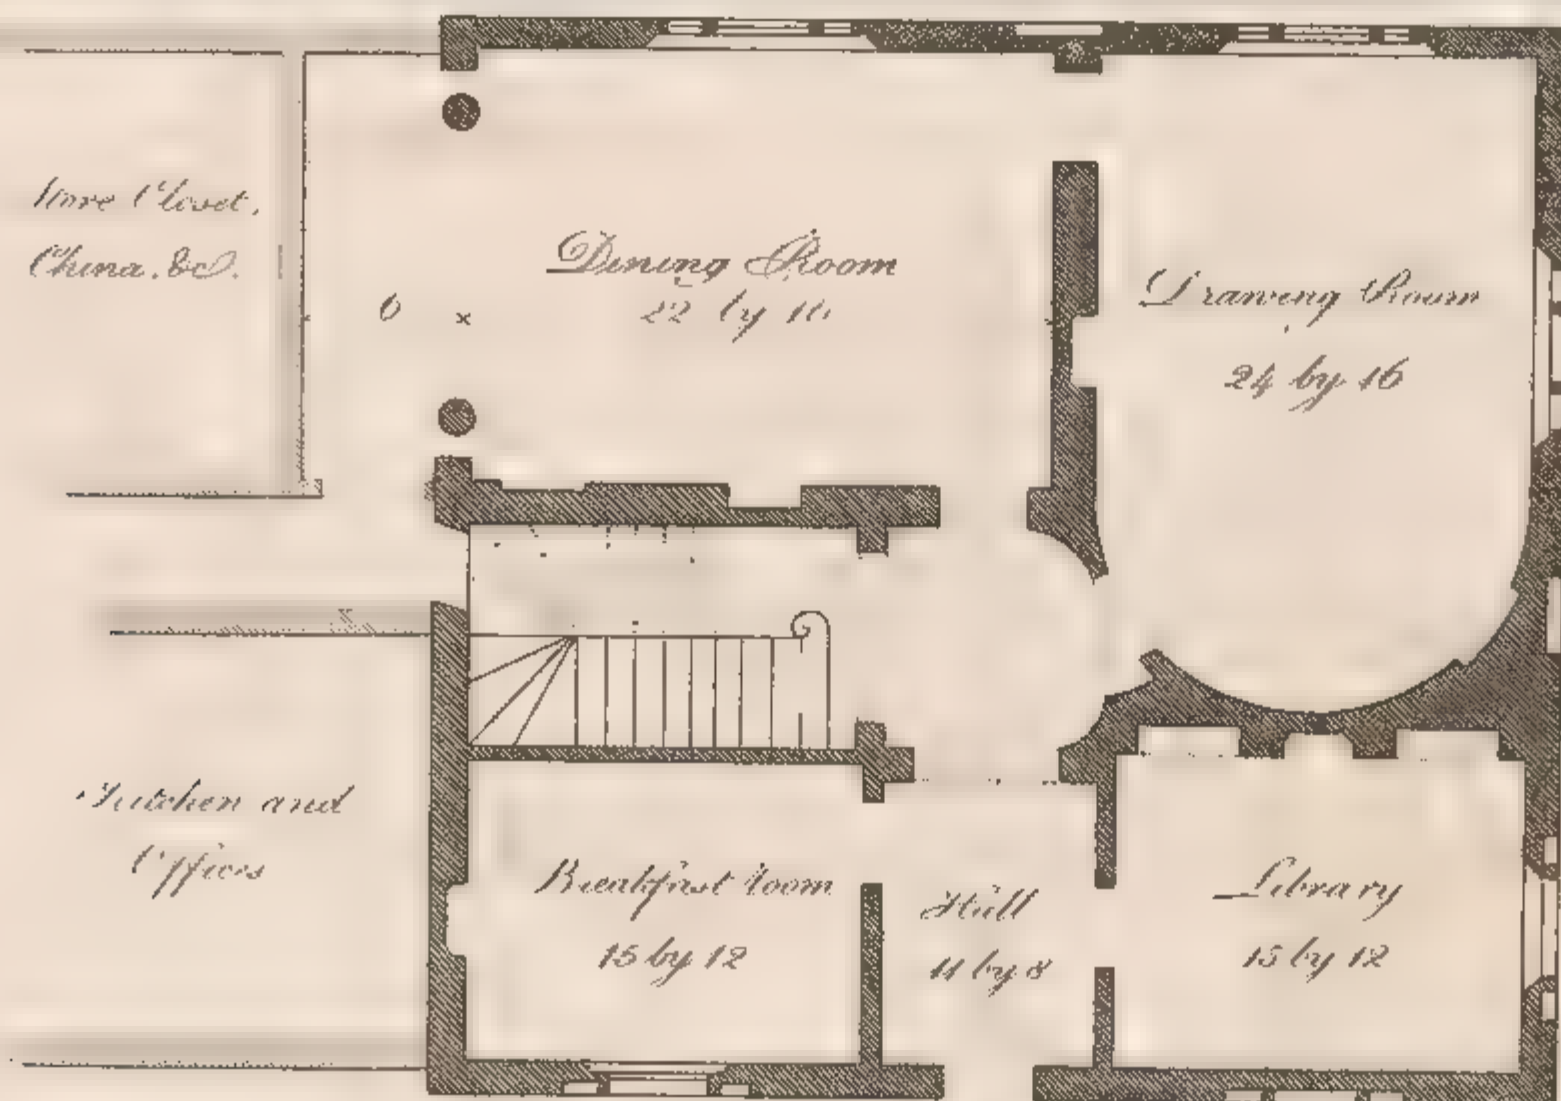 Store Closet,
China, &c.
6 ×
Dining Room
22 by 16
Drawing Room
24 by 16
Kitchen and
Offices
Breakfast room
15 by 12
Hall
11 by 8
Library
15 by 12